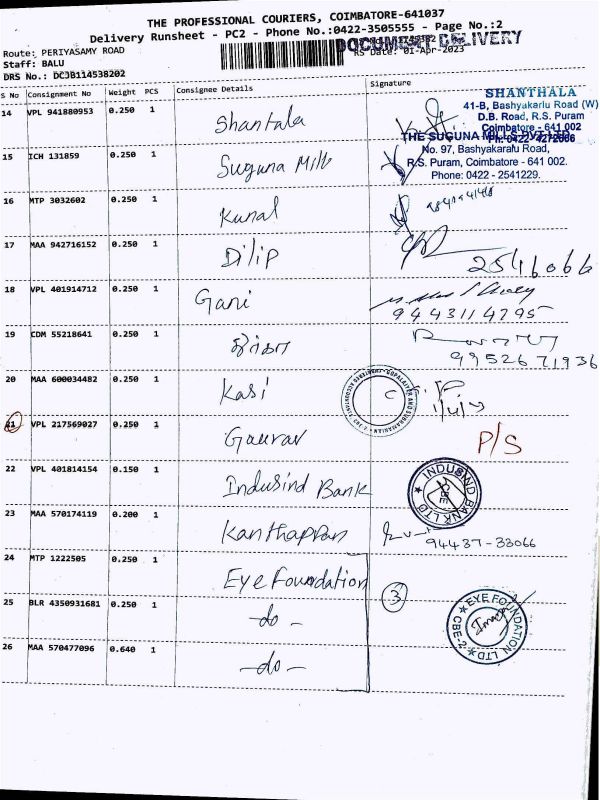 THE PROFESSIONAL COURIERS, COIMBATORE-641037
Delivery Runsheet - PC2 - Phone No.:0422-3505555 - Page No.:2
Route: PERIYASAMY ROAD
DOCUMENT DELIVERY
Staff: BALU
RS Date: 01-Apr-2023
DRS No.: DCJB114538202
S No Consignment No Weight PCS Consignee Details Signature
SHANTHALA
41-B, Bashyakarlu Road (W)
D.B. Road, R.S. Puram
Coimbatore - 641 002
14 VPL 941880953 0.250 1 Shantala
THE SUGUNA MILLS PVT LTD
No. 97, Bashyakarlu Road,
R.S. Puram, Coimbatore - 641 002.
Phone: 0422 - 2541229.
15 ICH 131859 0.250 1 Suguna Mills
16 MTP 3032602 0.250 1 Kunal
17 MAA 942716152 0.250 1 Dilip 2546066
18 VPL 401914712 0.250 1 Gani
9443114795
19 CDM 55218641 0.250 1
9952671936
20 MAA 600034482 0.250 1 Kasi
21 VPL 217569027 0.250 1 Gaurav P/S
22 VPL 401814154 0.150 1 Indusind Bank
INDUSIND BANK LTD CBE
23 MAA 570174119 0.200 1 Kanthappan
94437-33066
24 MTP 1222505 0.250 1 Eye Foundation
3
EYE FOUNDATION LTD CBE-2
25 BLR 4350931681 0.250 1 -do-
26 MAA 570477096 0.640 1 -do-